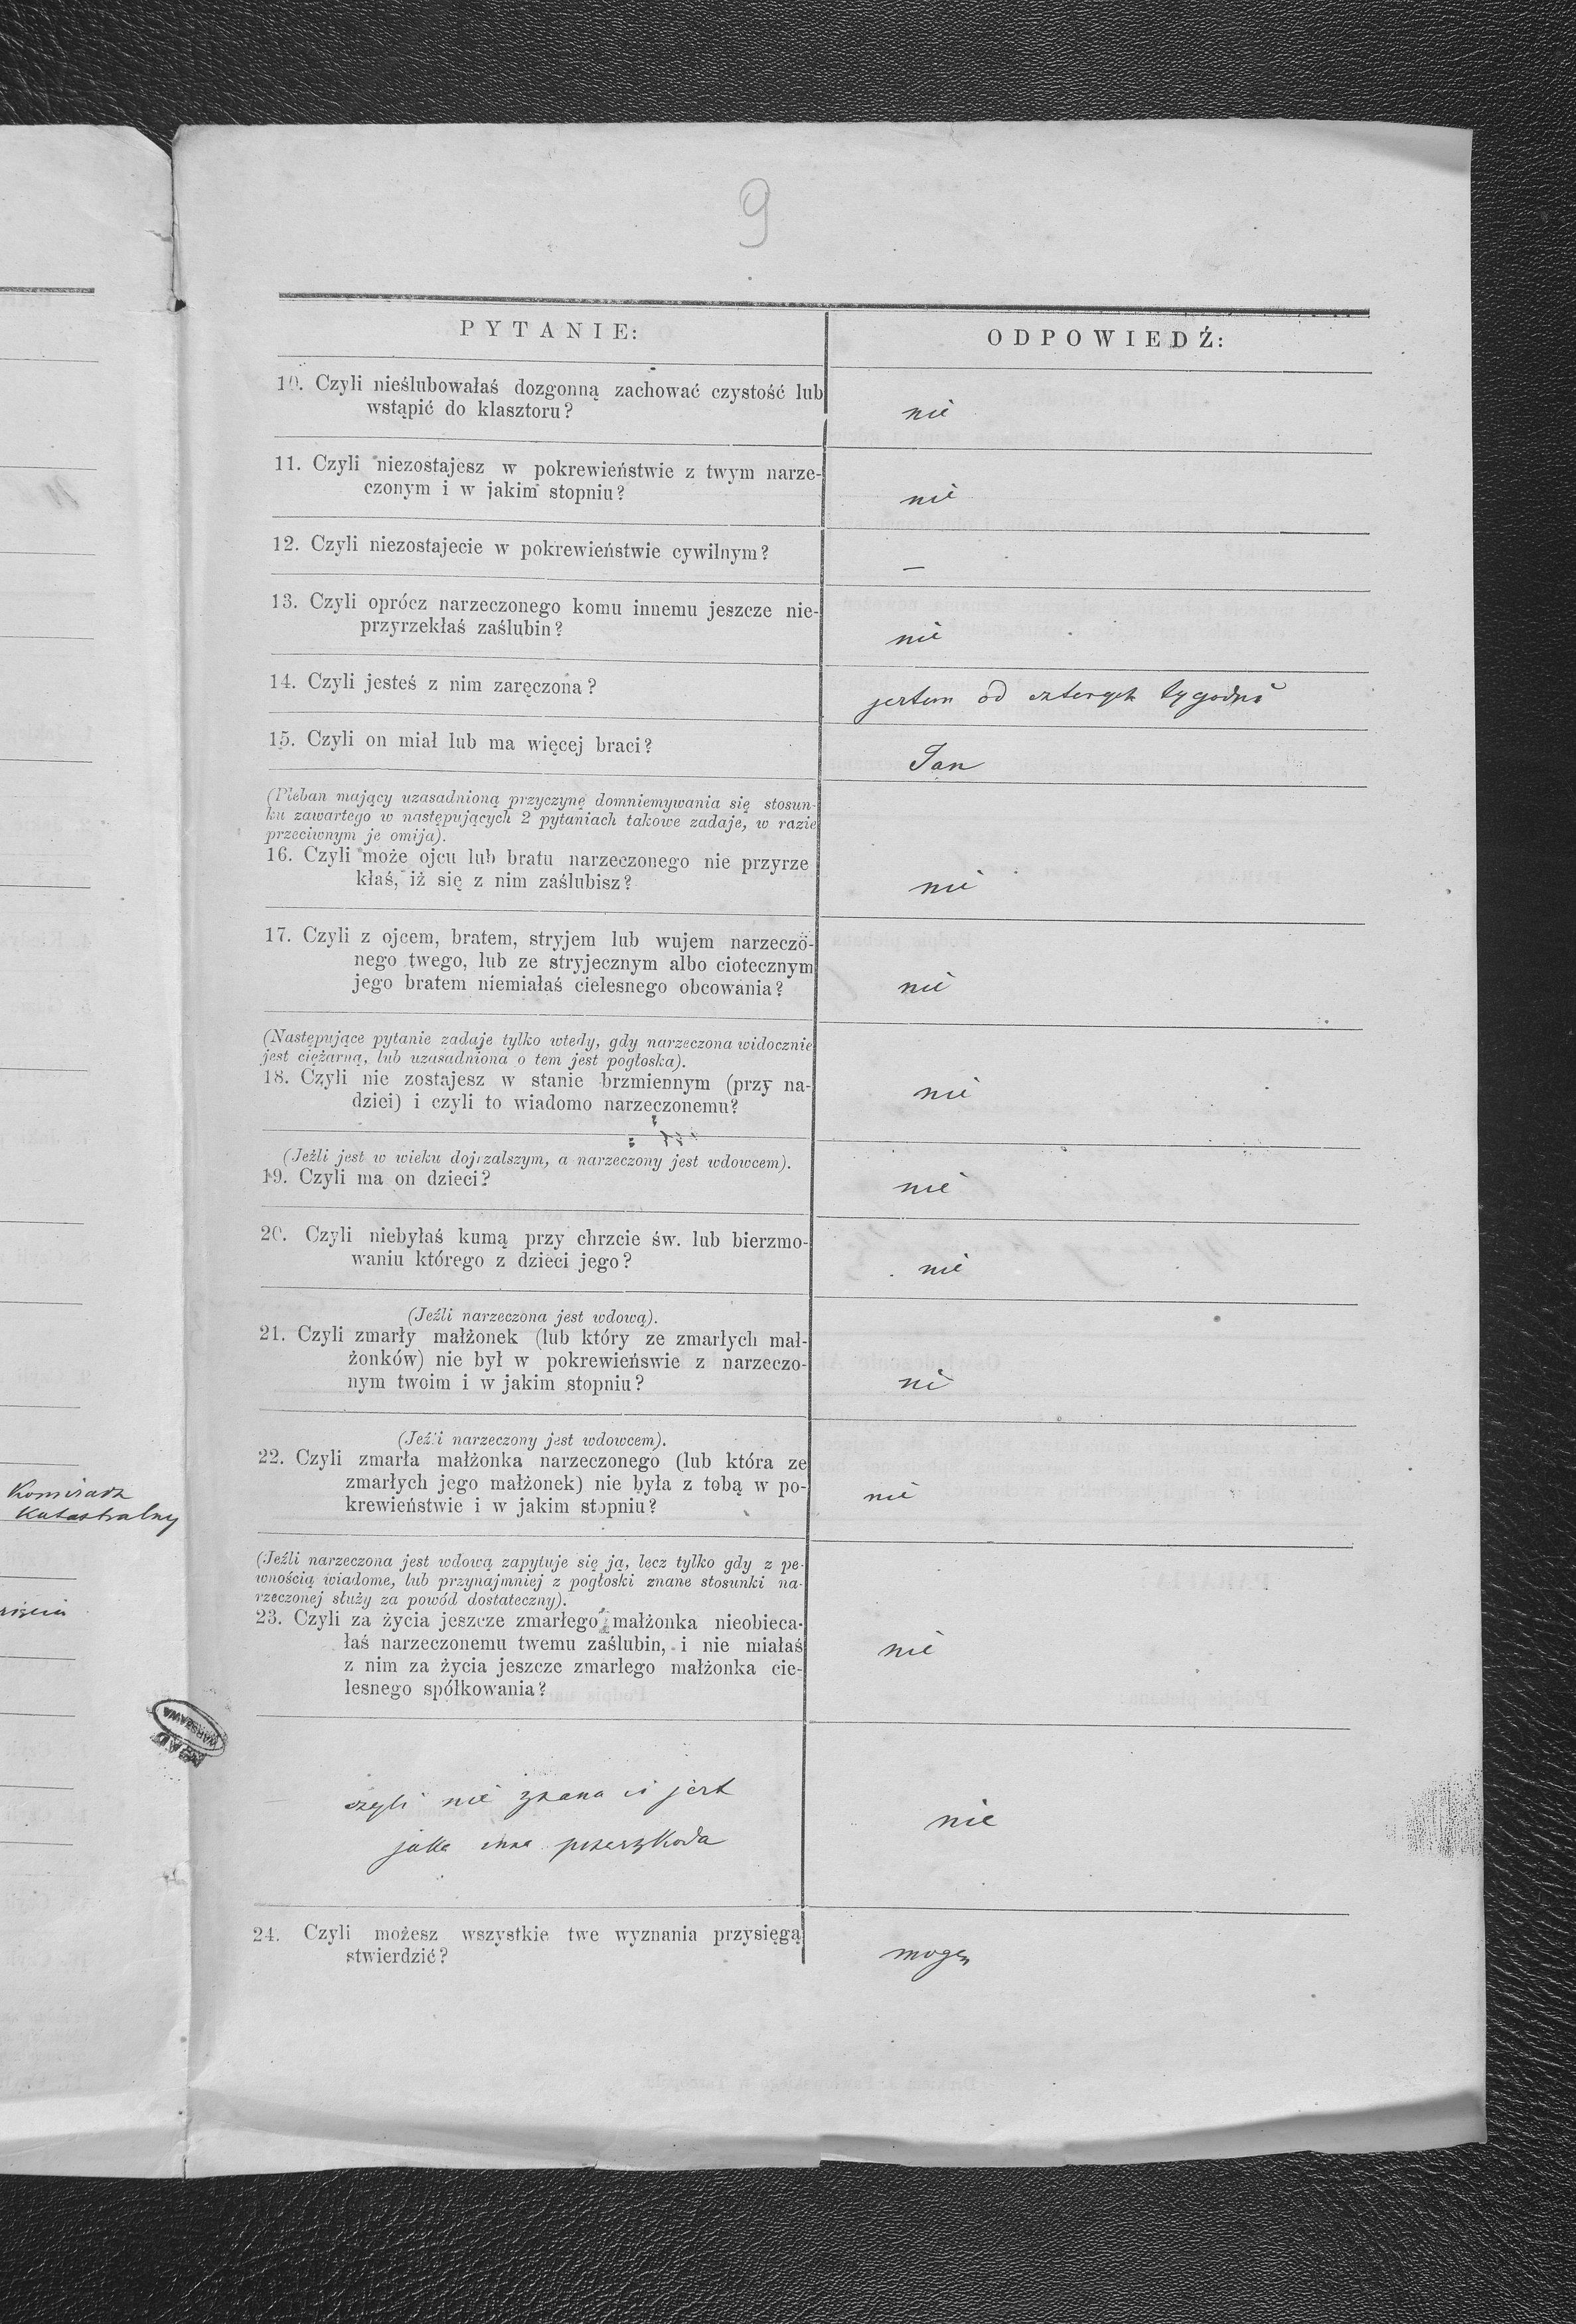 9
PYTANIE:
ODPOWIEDŹ:
10. Czyli nieślubowałaś dozgonną zachować czystość lub
wstąpić do klasztoru?
nie
11. Czyli niezostajesz w pokrewieństwie z twym narze-
czonym i w jakim stopniu?
nie
12. Czyli niezostajecie w pokrewieństwie cywilnym?
—
13. Czyli oprócz narzeczonego komu innemu jeszcze nie-
przyrzekłaś zaślubin?
nie
14. Czyli jesteś z nim zaręczona?
jestem od czterych tygodni
15. Czyli on miał lub ma więcej braci?
Jan
(Pleban mający uzasadnioną przyczynę domniemywania się stosun-
ku zawartego w następujących 2 pytaniach takowe zadaje, w razie
przeciwnym je omija).
16. Czyli może ojcu lub bratu narzeczonego nie przyrze
kłaś, iż się z nim zaślubisz?
nie
17. Czyli z ojcem, bratem, stryjem lub wujem narzeczo-
nego twego, lub ze stryjecznym albo ciotecznym
jego bratem niemiałaś cielesnego obcowania?
nie
(Następujące pytanie zadaje tylko wtedy, gdy narzeczona widocznie
jest ciężarną, lub uzasadniona o tem jest pogłoska).
18. Czyli nie zostajesz w stanie brzmiennym (przy na-
dziei) i czyli to wiadomo narzeczonemu?
nie
(Jeźli jest w wieku dojrzalszym, a narzeczony jest wdowcem).
19. Czyli ma on dzieci?
nie
20. Czyli niebyłaś kumą przy chrzcie św. lub bierzmo-
waniu którego z dzieci jego?
nie
(Jeźli narzeczona jest wdową).
21. Czyli zmarły małżonek (lub który ze zmarłych mał-
żonków) nie był w pokrewieńswie z narzeczo-
nym twoim i w jakim stopniu?
nie
(Jeźli narzeczony jest wdowcem).
22. Czyli zmarła małżonka narzeczonego (lub która ze
zmarłych jego małżonek) nie była z tobą w po-
krewieństwie i w jakim stopniu?
nie
(Jeźli narzeczona jest wdową zapytuje się ją, lecz tylko gdy z pe-
wnością wiadome, lub przynajmniej z pogłoski znane stosunki na-
rzeczonej służy za powód dostateczny).
23. Czyli za życia jeszcze zmarłego małżonka nieobieca-
łaś narzeczonemu twemu zaślubin, i nie miałaś
z nim za życia jeszcze zmarlego małżonka cie-
lesnego spółkowania?
nie
czyli nie znana ci jest
jaka inna przeszkoda
nie
24. Czyli możesz wszystkie twe wyznania przysięgą
stwierdzić?
mogę
Komisarz
Katastralny
AGAD
WARSZAWA